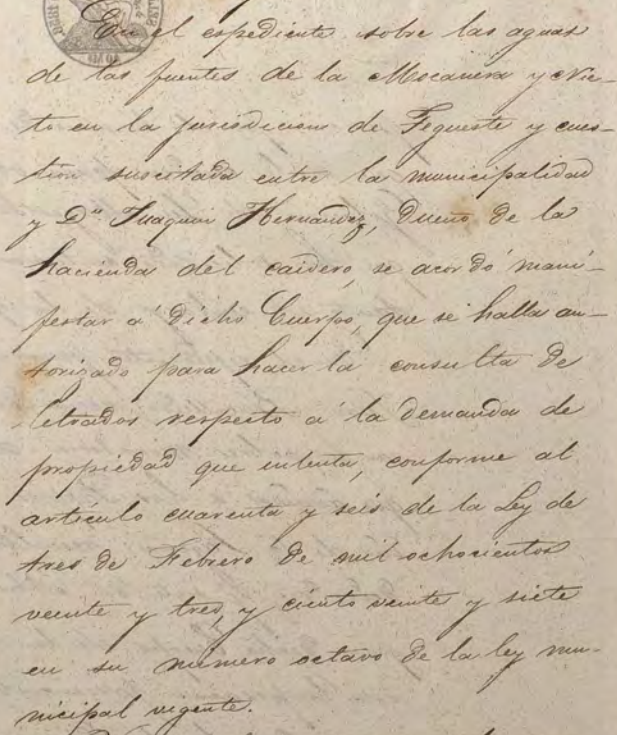 En el espediente sobre las aguas
de las fuentes de la Mocanera y Nie-
to en la jurisdicion de Tegueste y cues-
tion suscitada entre la municipalidad
y Dn Juaquin Hernandez, Dueño de la
hacienda del caidero, se acordó mani-
festar a' dicho Cuerpo, que se halla au-
torizado para hacer la consulta de
letrados respecto a' la demanda de
propiedad que intenta, conforme al
articulo cuarenta y seis de la Ley de
tres de Febrero de mil ochocientos
veinte y tres, y ciento veinte y siete
en su número octavo de la ley mu-
nicipal vigente.